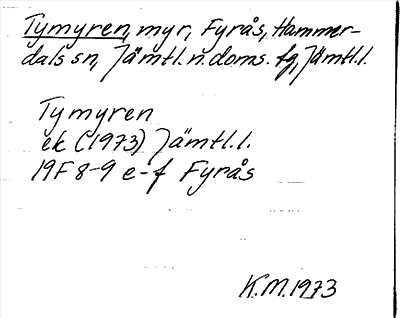 Tymyren, myr, Fyrås, Hammer-
dals sn, Jämtl. n. doms. fg, Jämtl. l.
Tymyren
ek (1973) Jämtl. l.
19F 8-9 e-f Fyrås
K.M. 1973